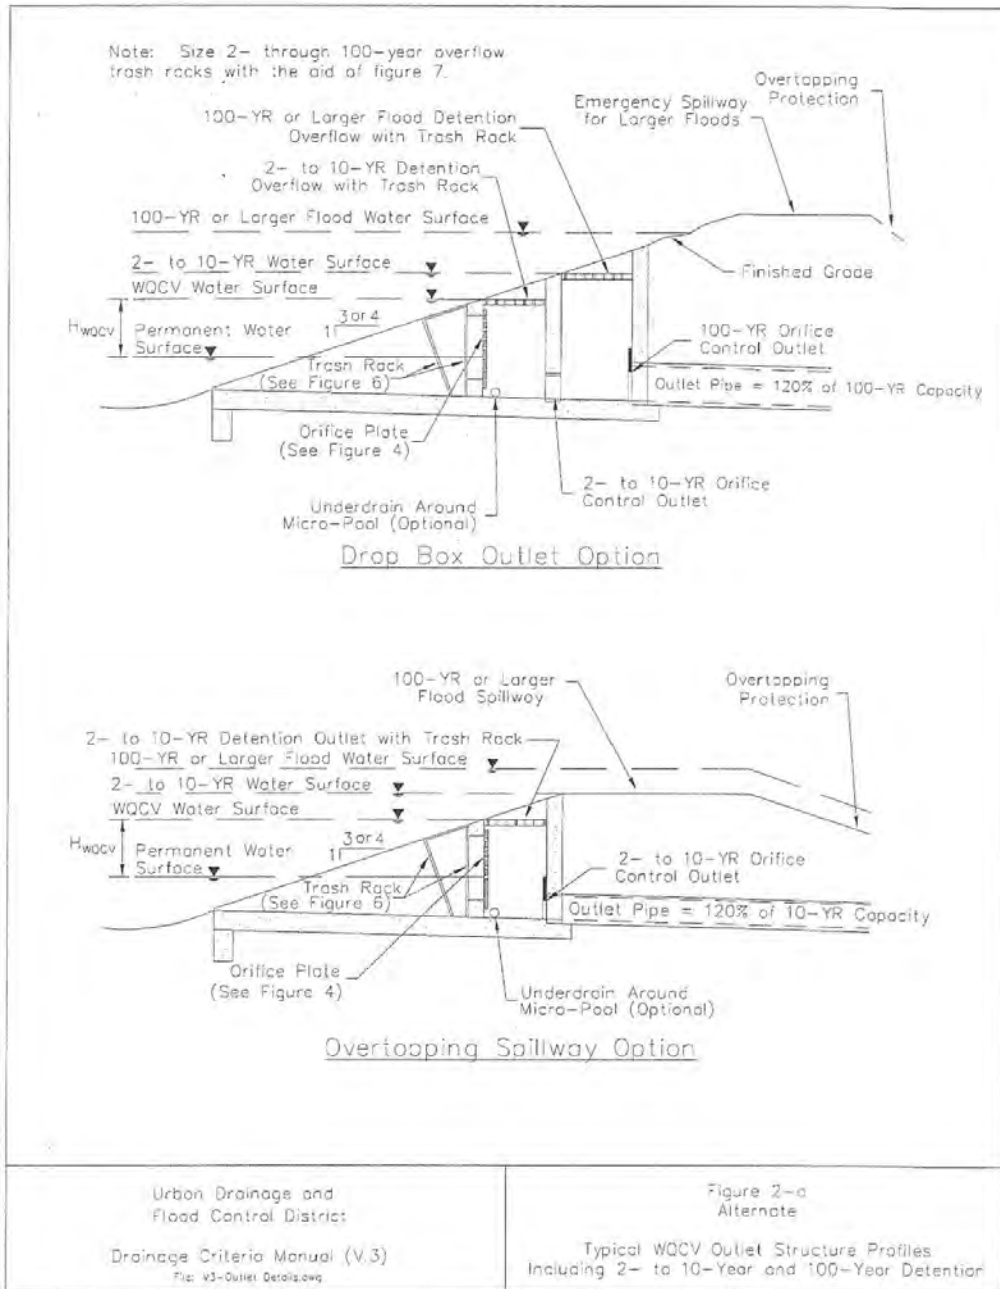 Note: Size 2- through 100-year overflow
trash racks with the aid of figure 7.
Overtopping
Protection
Emergency Spillway
for Larger Floods
100-YR or Larger Flood Detention
Overflow with Trash Rack
2- to 10-YR Detention
Overflow with Trash Rack
100-YR or Larger Flood Water Surface
2- to 10-YR Water Surface
WQCV Water Surface
Finished Grade
HWQCV
3 or 4
1
Permanent Water
Surface
100-YR Orifice
Control Outlet
Trash Rack
(See Figure 6)
Outlet Pipe = 120% of 100-YR Capacity
Orifice Plate
(See Figure 4)
2- to 10-YR Orifice
Control Outlet
Underdrain Around
Micro-Pool (Optional)
Drop Box Outlet Option
100-YR or Larger
Flood Spillway
Overtopping
Protection
2- to 10-YR Detention Outlet with Trash Rack
100-YR or Larger Flood Water Surface
2- to 10-YR Water Surface
WQCV Water Surface
HWQCV
3 or 4
1
Permanent Water
Surface
2- to 10-YR Orifice
Control Outlet
Trash Rack
(See Figure 6)
Outlet Pipe = 120% of 10-YR Capacity
Orifice Plate
(See Figure 4)
Underdrain Around
Micro-Pool (Optional)
Overtopping Spillway Option
Urban Drainage and
Flood Control District
Drainage Criteria Manual (V.3)
File: V3-Outlet Details.dwg
Figure 2-a
Alternate
Typical WQCV Outlet Structure Profiles
Including 2- to 10-Year and 100-Year Detention